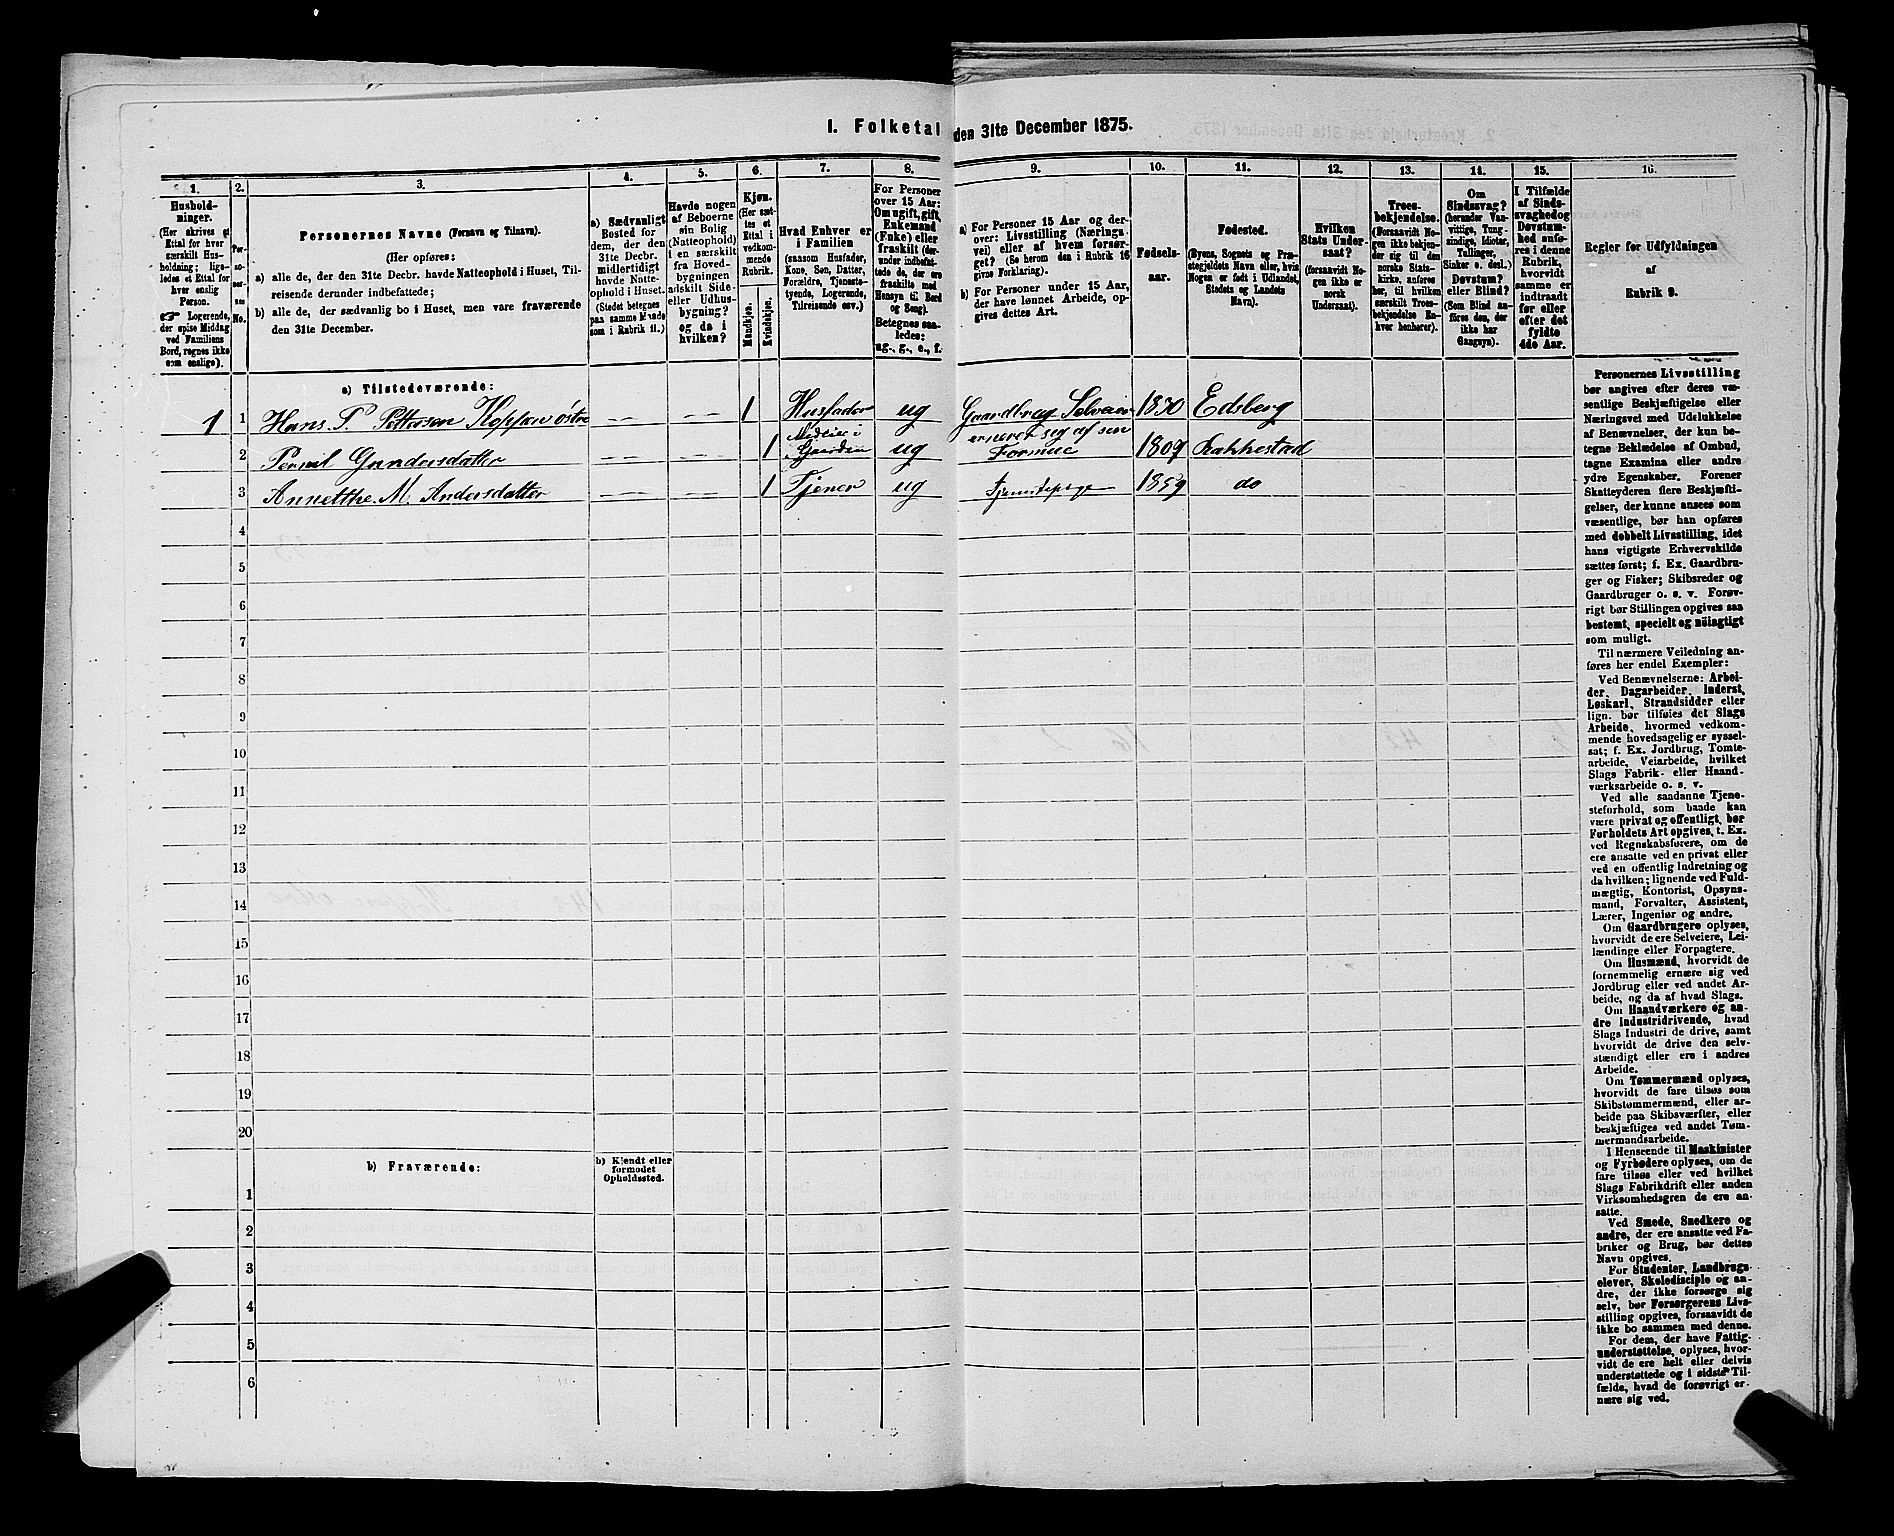 I. Folketal den 31te December 1875.
1.
Hushold-
ninger.
(Her skrives et
Ettal for hver
særskilt Hus-
holdning; lige-
ledes et Ettal for
hver enslig
Person.
☞ Logerende,
der spise Middag
ved Familiens
Bord, regnes ikke
som enslige).
2.
Per-
so-
ner-
nes
No.
3.
Personernes Navne (Fornavn og Tilnavn).
(Her opføres:
a) alle de, der den 31te Decbr. havde Natteophold i Huset, Til-
reisende derunder indbefattede;
b) alle de, der sædvanlig bo i Huset, men vare fraværende
den 31te December.
4.
a) Sædvanligt
Bosted for
dem, der den
31te Decbr.
midlertidigt
havde Natte-
ophold i Huset.
(Stedet betegnes
paa samme Maade
som i Rubrik 11.)
5.
Havde nogen
af Beboerne
sin Bolig
(Natteophold)
i en særskilt
fra Hoved-
bygningen
adskilt Side-
eller Udhus-
bygning?
og da i
hvilken?
6.
Kjøn.
(Her sæt-
tes et
Ettal i
vedkom-
mende
Rubrik.
Mandkjøn.
Kvindekjøn.
7.
Hvad Enhver er
i Familien
(saasom Husfader,
Kone, Søn, Datter,
Forældre, Tjeneste-
tyende, Logerende,
Tilreisende osv.)
8.
For Personer
over 15 Aar:
Om ugift, gift,
Enkemand
(Enke) eller
fraskilt (der-
under indbefat-
tede de, der ere
fraskilte med
Hensyn til Bord
og Seng).
Betegnes saa-
ledes:
ug., g., e., f.
9.
a) For Personer 15 Aar og der-
over: Livsstilling (Nærings-
vei) eller af hvem forsør-
get? (Se herom den i Rubrik 16
givne Forklaring).
b) For Personer under 15 Aar,
der have lønnet Arbeide, op-
gives dettes Art.
10.
Fødsels-
aar.
11.
Fødested.
(Byens, Sognets og Præ-
stegjeldets Navn eller, hvis
Nogen er født i Udlandet,
Stedets og Landets
Navn).
12.
Hvilken
Stats Under-
saat?
(forsaavidt No-
gen ikke er
norsk
Undersaat).
13.
Troes-
bekjendelse.
(Forsaavidt No-
gen ikke bekjen-
der sig til den
norske Stats-
kirke, anføres
her, til hvilken
særskilt Troes-
bekjendelse En-
hver henhører).
14.
Om
Sindssvag?
(herunder Van-
vittige, Tung-
sindige, Idioter,
Tullinger,
Sinker o. desl.)
Døvstum?
eller Blind?
(Som Blind an-
føres den, der
ikke har
Gangsyn).
15.
I Tilfælde
af Sinds-
svaghed og
Døvstum-
hed anfø-
res i denne
Rubrik,
hvorvidt
samme er
indtraadt
før eller
efter det
fyldte
4de Aar.
16.
Regler for Udfyldningen
af
Rubrik 9.
a) Tilstedeværende:
1 1 Hans P. Pettersen Koppan østre — — — — 1 Husfader ug Gaardbrug Selveier 1830 Edsberg
2 Pernil Gundersdatter — — — — 1 Medeier i Gaarden ug ernerer sig af sin Formue 1809 Rakkestad
3 Annetthe M. Andersdatter — — — — 1 Tjener ug Tjenestepige 1859 do
4
5
6
7
8
9
10
11
12
13
14
15
16
17
18
19
20
b) Fraværende:
b) Kjendt eller
formodet
Opholdssted.
1
2
3
4
5
6
Personernes Livsstilling
bør angives efter deres væ-
sentlige Beskjæftigelse eller
Næringsvei med Udelukkelse
af Benævnelser, der kun be-
tegne Beklædelse af Ombud,
tagne Examina eller andre
ydre Egenskaber. Forener
Skatteyderen flere Beskjæfti-
gelser, der kunne ansees som
væsentlige, bør han opføres
med dobbelt Livsstilling, idet
hans vigtigste Erhvervskilde
sættes først; f. Ex. Gaardbru-
ger og Fisker; Skibsreder og
Gaardbruger o. s. v. Forøv-
rigt bør Stillingen opgives saa
bestemt, specielt og nöiagtigt
som muligt.
Til nærmere Veiledning an-
føres her endel Exempler:
Ved Benævnelserne: Arbei-
der, Dagarbeider, Inderst,
Løskarl, Strandsidder eller
lign. bør tilføies det Slags
Arbeide, hvormed vedkom-
mende hovedsagelig er syssel-
sat; f. Ex. Jordbrug, Tomte-
arbeide, Veiarbeide, hvilket
Slags Fabrik- eller Haand-
værksarbeide o. s. v.
Ved alle saadanne Tjene-
steforhold, som baade kan
være privat og offentligt, bør
Forholdets Art opgives, t. Ex.
ved Regnskabsførere, om de
ere ansatte ved en privat eller
ved en offentlig Indretning og
da hvilken; lignende ved Fuld-
mægtig, Kontorist, Opsyns-
mand, Forvalter, Assistent,
Lærer, Ingeniør og andre.
Om Gaardbrugere oplyses,
hvorvidt de ere Selveiere, Lei-
lændinge eller Forpagtere.
Om Husmænd, hvorvidt de
fornemmelig ernære sig ved
Jordbrug eller ved andet Ar-
beide, og da af hvad Slags.
Om Haandværkere og an-
dre Industridrivende, hvad
Slags Industri de drive, samt
hvorvidt de drive den selv-
stændigt eller ere i andres
Arbeide.
Om Tømmermænd oplyses,
hvorvidt de fare tilsøs som
Skibstømmermænd, eller ar-
beide paa Skibsværfter, eller
beskjæftiges ved andet Tøm-
mermandsarbeide.
I Henseende til Maskinister
og Fyrbødere oplyses, om de
fare tilsøs eller ved hvilket
Slags Fabrikdrift eller anden
Virksomhedsgren de ere an-
satte.
Ved Smede, Snedkere og
andre, der ere ansatte ved Fa-
briker og Brug, bør dettes
Navn opgives.
For Studenter, Landbrugs-
elever, Skoledisciple og an-
dre, der ikke forsørge sig
selv, bør Forsørgerens Livs-
stilling opgives, forsaavidt de
ikke bo sammen med denne.
For dem, der have Fattig-
understøttelse, oplyses, hvor-
vidt de ere helt eller delvis
understøttede og i sidste Til-
fælde, hvad de forøvrigt er-
nære sig ved.